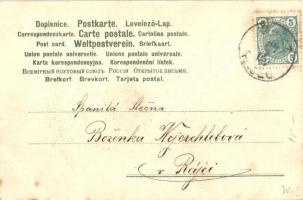 Dopisnice. Postkarte. Levelező-Lap.
Correspondenzkarte. Carte postale. Cartolina postale.
Post card. Weltpostverein. Briefkaart.
Union postale universelle. Unione postale universale.
Karta korespondencyjna. Korespondenční lístek.
Всемирный почтовый союзъ. Россія. Открытое письмо.
Brefkort. Brevkort. Tarjeta postal.
Spanilá Slečna
Boženka Wejrechtebová
v Rájci